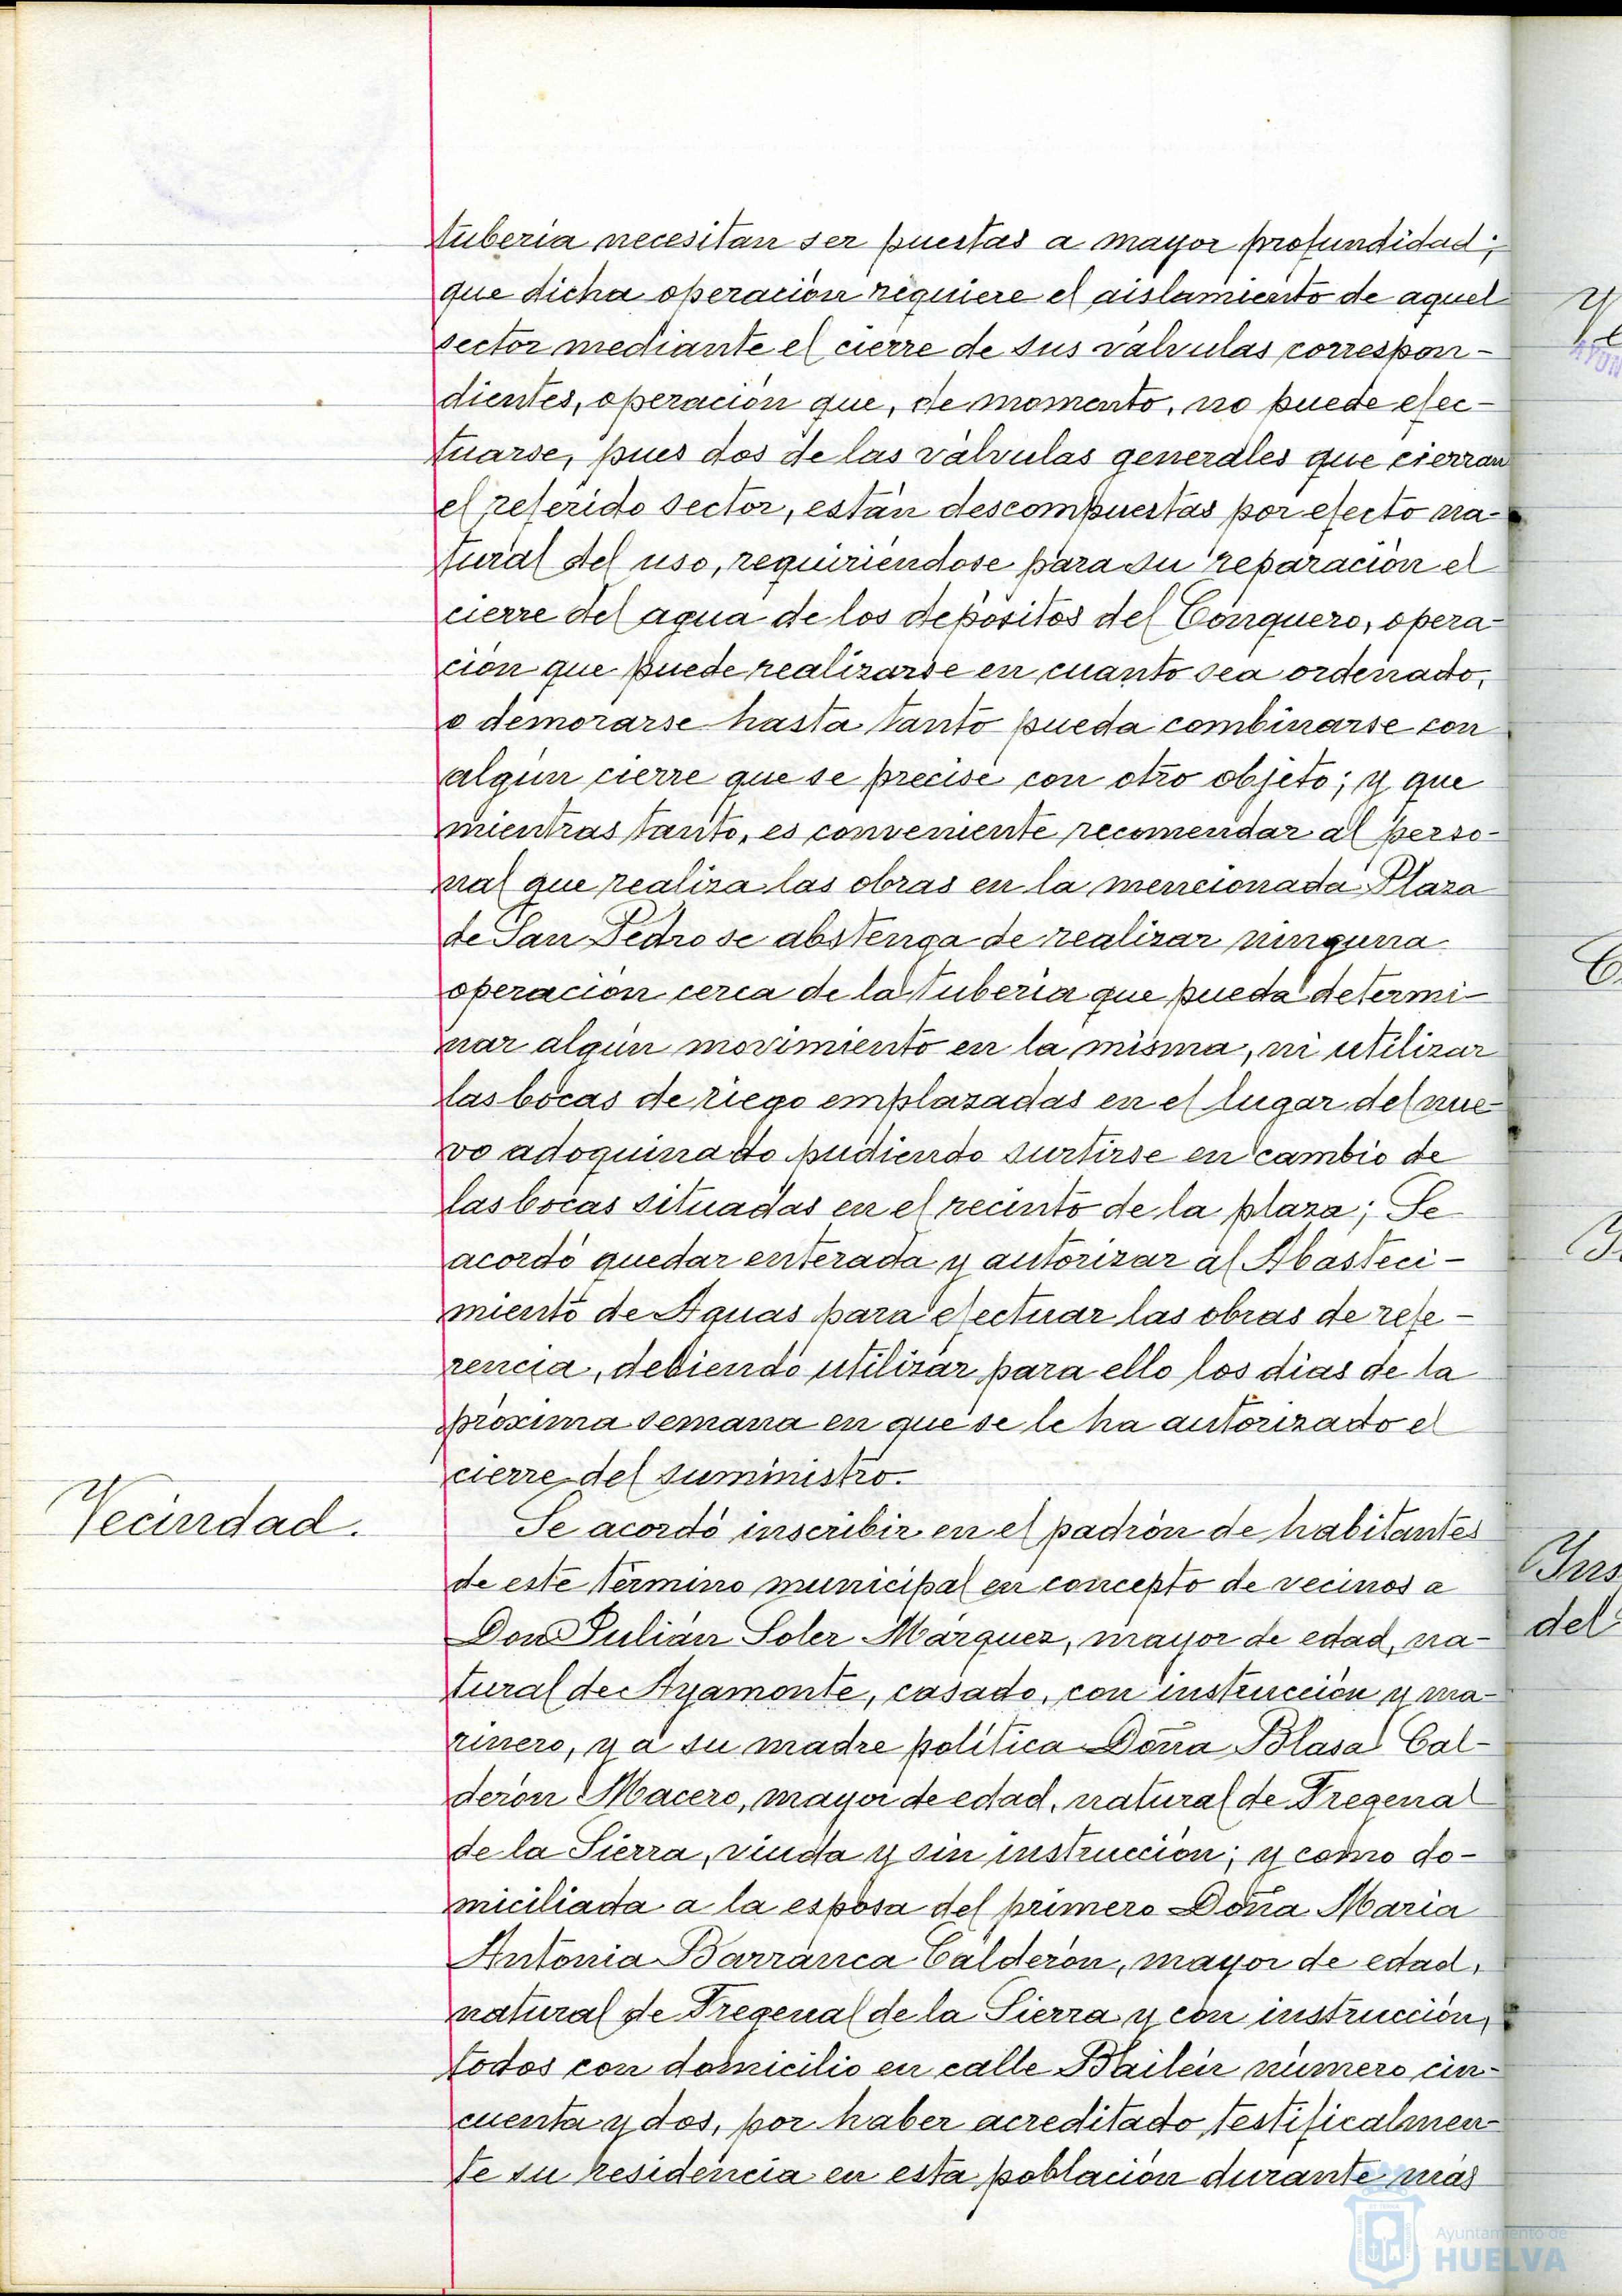 tuberia necesitan ser puestas a mayor profundidad;
que dicha operación requiere el aislamiento de aquel
sector mediante el cierre de sus válvulas correspon-
dientes, operación que, de momento, no puede efec-
tuarse, pues dos de las válvulas generales que cierran
el referido sector, están descompuestas por efecto na-
tural del uso, requiriéndose para su reparación el
cierre del agua de los depósitos del Conquero, opera-
ción que puede realizarse en cuanto sea ordenado,
o demorarse hasta tanto pueda combinarse con
algún cierre que se precise con otro objeto; y que
mientras tanto, es conveniente recomendar al perso-
nal que realiza las obras en la mencionada Plaza
de San Pedro se abstenga de realizar ninguna
operación cerca de la tuberia que pueda determi-
nar algún movimiento en la misma, ni utilizar
las bocas de riego emplazadas en el lugar del nue-
vo adoquinado pudiendo surtirse en cambio de
las bocas situadas en el recinto de la plaza; Se
acordó quedar enterada y autorizar al Abasteci-
miento de Aguas para efectuar las obras de refe-
rencia, debiendo utilizar para ello los dias de la
próxima semana en que se le ha autorizado el
cierre del suministro.
Vecindad.
Se acordó inscribir en el padrón de habitantes
de este término municipal en concepto de vecinos a
Don Julián Soler Márquez, mayor de edad, na-
tural de Ayamonte, casado, con instrucción y ma-
rinero, y a su madre política Doña Blasa Cal-
derón Macero, mayor de edad, natural de Fregenal
de la Sierra, viuda y sin instrucción; y como do-
miciliada a la esposa del primero Doña Maria
Antonia Barranca Calderón, mayor de edad,
natural de Fregenal de la Sierra y con instrucción,
todos con domicilio en calle Bailén número cin-
cuenta y dos, por haber acreditado testificalmen-
te su residencia en esta población durante más
del
Ayuntamiento de
HUELVA